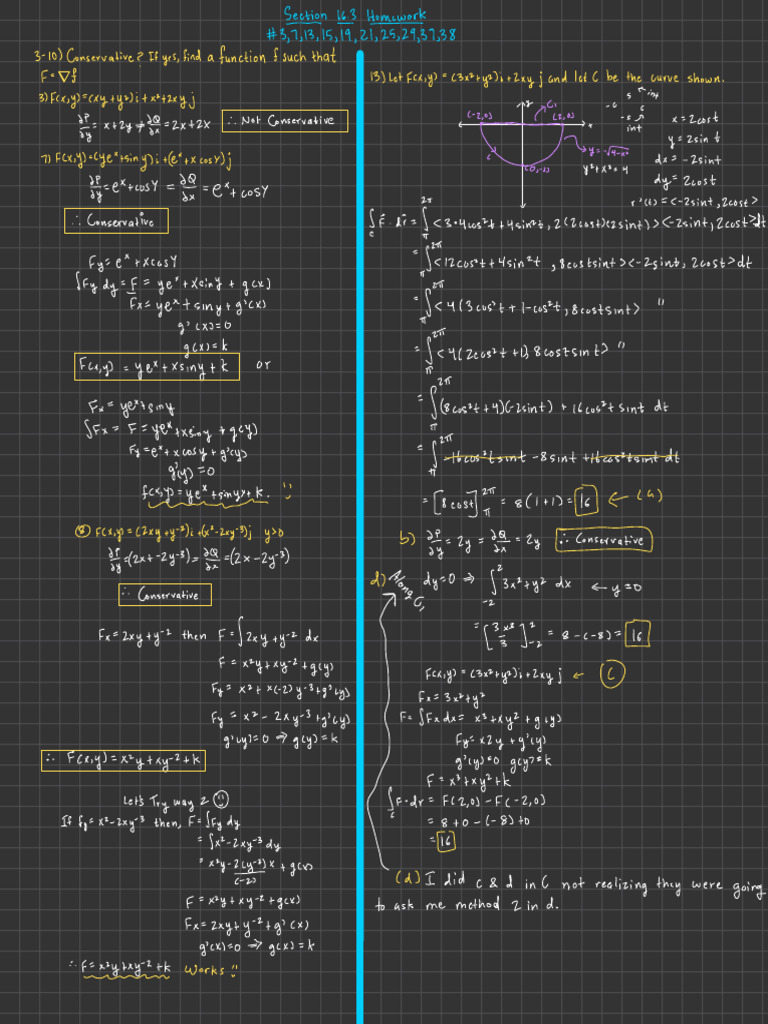 Section 16.3 Homework
#3,7,13,15,19,21,25,29,37,38
3-10) Conservative? If yes, find a function f such that
F = ∇f
3) F(x,y)=(xy+y²)i+x²+2xy j
∂P/∂y = x+2y ≠ ∂Q/∂x = 2x+2x ∴ Not Conservative
7) F(x,y)=(ye^x+siny)i+(e^x+xcosy)j
∂P/∂y = e^x+cosy = ∂Q/∂x = e^x+cosy
∴ Conservative
Fy = e^x + xcosy
∫Fy dy = F = ye^x + xsiny + g(x)
Fx = ye^x + siny + g'(x)
g'(x)=0
g(x)=k
F(x,y) = ye^x + xsiny + k or
Fx = ye^x + siny
∫Fx = F = ye^x + xsiny + g(y)
Fy = e^x + xcosy + g'(y)
g'(y)=0
f(x,y) = ye^x + sinyx + k. :)
⑧ F(x,y) = (2xy + y^-2)i+(x²-2xy^-3)j y>0
∂P/∂y = (2x+-2y^-3) = ∂Q/∂x = (2x-2y^-3)
∴ Conservative
Fx = 2xy+y^-2 then F = ∫2xy+y^-2 dx
F = x²y + xy^-2 + g(y)
Fy = x² + x(-2)y^-3 + g'(y)
Fy = x² - 2xy^-3 + g'(y)
g'(y)=0 → g(y)=k
∴ F(x,y) = x²y + xy^-2 + k
Let's Try way 2 :)
If fy = x²-2xy^-3 then, F = ∫Fy dy
= ∫x²-2xy^-3 dy
= x²y - 2(y^-2)x/(-2) + g(x)
F = x²y + xy^-2 + g(x)
Fx = 2xy + y^-2 + g'(x)
g'(x)=0 → g(x)=k
∴ F = x²y + xy^-2 + k Works :)
13) Let F(x,y) = (3x²+y²)i+2xy j and let C be the curve shown.
y C₁
(-2,0) (2,0) x
C
(0,-2)
y = -√4-x²
y²+x²=4
s int
-c c
-s
int
x = 2cost
y = 2sint
dx = -2sint
dy = 2cost
r'(t) = <-2sint, 2cost>
∫_C F·dr = ∫_π^2π <3·4cos²t+4sin²t, 2(2cost)(2sint)><-2sint, 2cost>dt
= ∫_π^2π <12cos²t+4sin²t, 8costsint><-2sint, 2cost>dt
= ∫_π^2π <4(3cos²t+1-cos²t, 8costsint> "
= ∫_π^2π <4(2cos²t+1) 8costsint> "
= ∫_π^2π (8cos²t+4)(-2sint) + 16cos²tsint dt
= ∫_π^2π -16cos²tsint -8sint +16cos²tsint dt
= [8cost]_π^2π = 8(1+1) = 16 ← (a)
b) ∂P/∂y = 2y = ∂Q/∂x = 2y ∴ Conservative
d) Along C₁ dy=0 ⇒ ∫_-2^2 3x²+y² dx ← y=0
= [3x³/3]_-2^2 = 8-(-8) = 16
F(x,y) = (3x²+y²)i+2xy j ← C
Fx = 3x²+y²
F = ∫Fx dx = x³+xy²+g(y)
Fy = x2y + g'(y)
g'(y)=0 g(y)=k
F = x³+xy²+k
∫_C F·dr = F(2,0) - F(-2,0)
= 8+0-(-8)+0
= 16
(d) I did c & d in C not realizing they were going
to ask me method 2 in d.